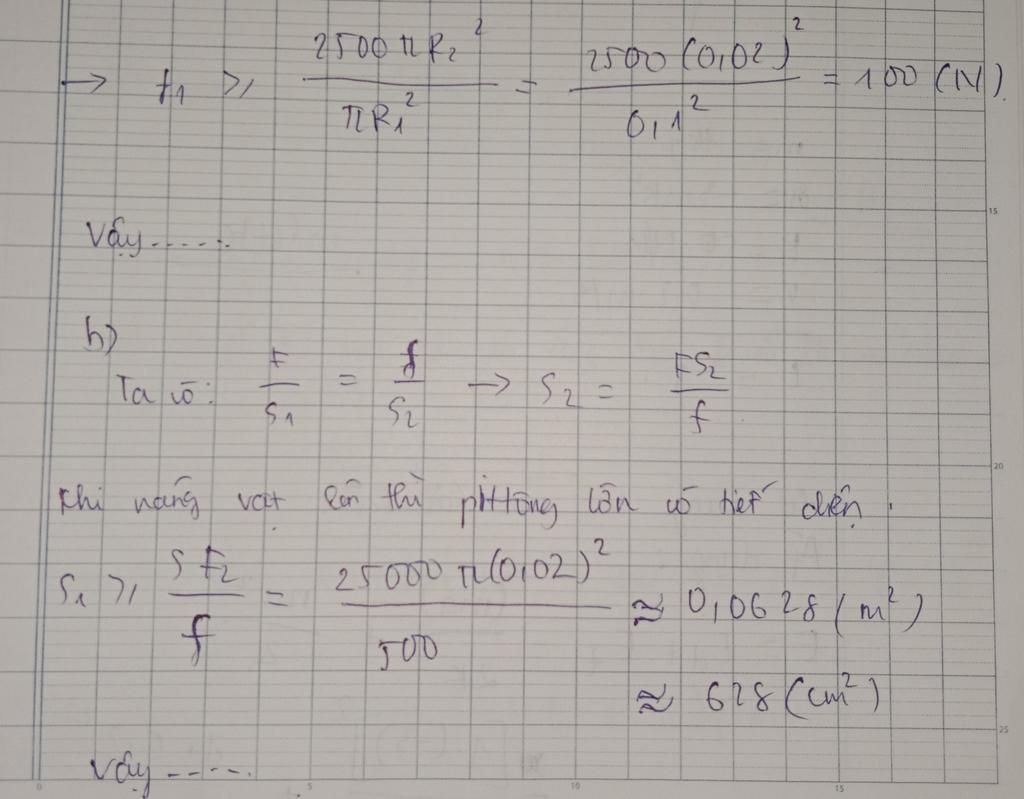 → f₁ ⩾ 2500πR₂² / πR₁² = 2500(0,02)² / 0,1² = 100 (N).
15
Vậy......
b)
Ta có: F/S₁ = f/S₂ → S₂ = FS₂/f
20
Khi nâng vật lên thì pittông lớn có tiết diện
S₁ ⩾ SF₂/f = 25000π(0,02)² / 500 ≈ 0,0628 (m²)
≈ 628 (cm²)
25
Vậy......
0 5 10 15